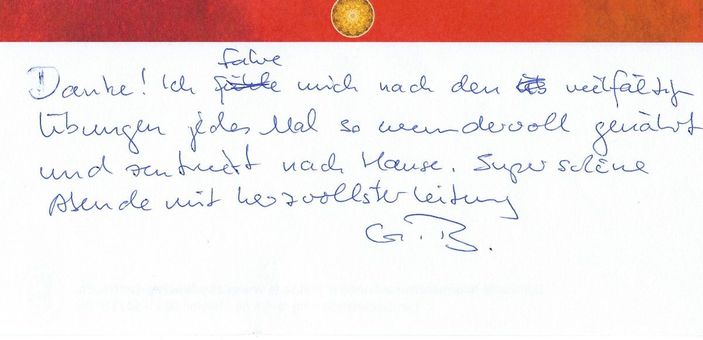 Danke! Ich fahre mich nach den vielfältig
Übungen jedes Mal so wundervoll genährt
und zentriert nach Hause. Super schöne
Abende mit herzvollster Leitung
G. B.